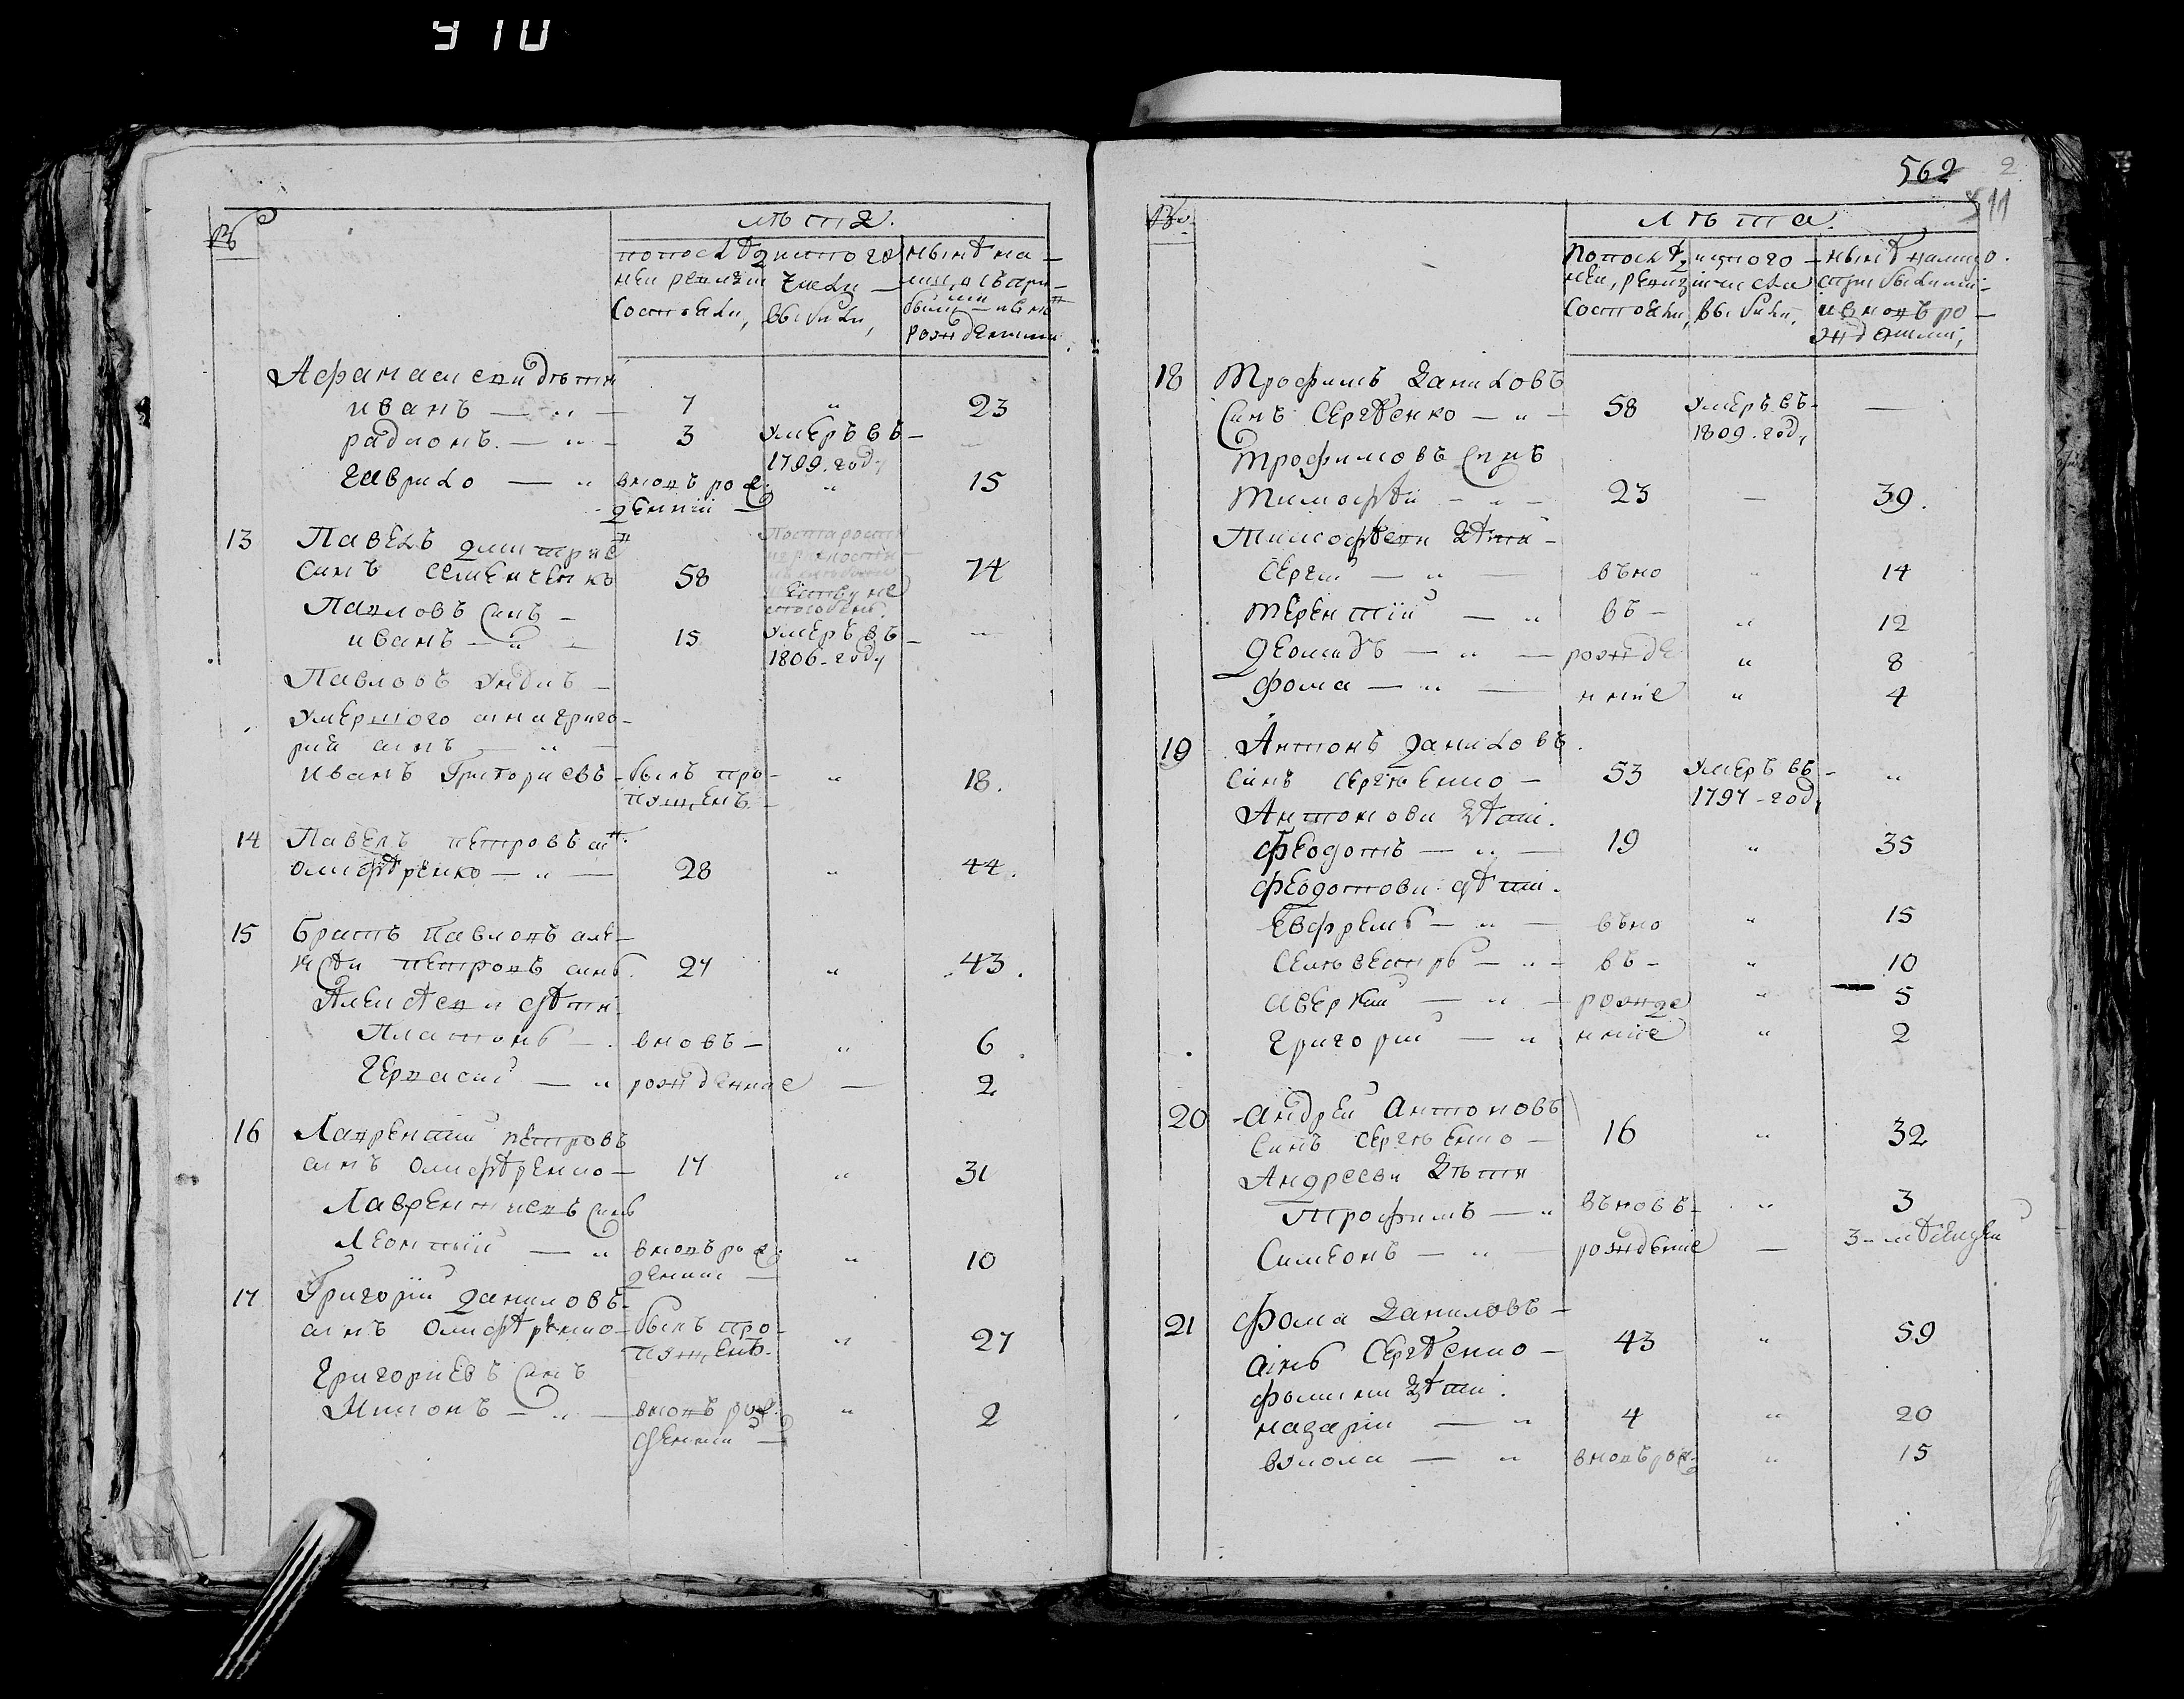 910
№
лѣта.
попослѣд
ней ревизіи
состояли,
изтого
числа
выбыли,
нынѣ на-
лицо съ при-
рожденными.
Афанасиевидѣти
иванъ — „ — 7 „ 23
радионъ. — „ — 3 умеръ въ — —
1799. году
гаврило — „ вновь рож „ 15
денній
13 Павелъ дмитрие
синъ семенченкъ 58 74
Павловъ синъ —
иванъ — „ — 15 умеръ въ — —
1806 - году
Павловъ унукъ —
умершого сина григо-
рия синъ — „ —
иванъ Григориевъ - былъ про- „ 18.
пущенъ.
14 Павелъ петровъ си н.
олиферѣнко — „ — 28 „ 44.
15 братъ Павловъ але-
ксѣй петровъ синъ. 27 „ 43.
Алексѣеви дѣти.
Платонъ — . вновь — „ 6.
Гервасий — „ рожденние — 2
16 Лаврентий петровъ
синъ олиферѣнко — 17 „ 31
Лаврентиевъ синъ
Леонтий — „ вновь рож „ 10
денний —
17 Григорій даниловъ-
синъ олиферѣнко - былъ про- „ 27
пущенъ.
Григориевъ синъ
Миронъ — „ — вновь рож „ 2
денний —
562 2
511
№
лѣта.
Попослѣд
ней, ревизіи
состояли,
изтого
числа
выбыли,
нынѣ налицо.
сприбилими-
ивновь ро-
жденими,
18 Трофимъ даниловъ
синъ сергѣенко — „ — 58 умеръ въ - —
1809. году
трофимовъ синъ
Тимофѣй — „ — 23 — 39.
Тимофѣеви дѣти -
сергий — „ — въно „ 14
терентій — „ въ - „ 12
деомидъ — „ — рожде „ 8
фома — „ — нніе „ 4
19 Антонъ даниловъ.
синъ сергѣенко — 53 умеръ въ - „
1797 - году
Антонови дѣти.
феодотъ — „ — 19 „ 35
феодотови дѣти.
евфремъ — „ — въно „ 15
селивестръ — „ - въ - „ 10
аверкий — „ — рожде „ 5
григорий — „ нніе „ 2
20 -андрей антоновъ
синъ сергѣенко — 16 „ 32
Андрееви дѣти
трофимъ — „ вънovъ- „ 3
Симеонъ — „ рожденіе — 3- мѣсецей
21 фома даниловъ —
синъ сергѣенко — 43 „ 59
фомини дѣти.
назарій — „ 4 „ 20
вукола — „ вновь рож „ 15